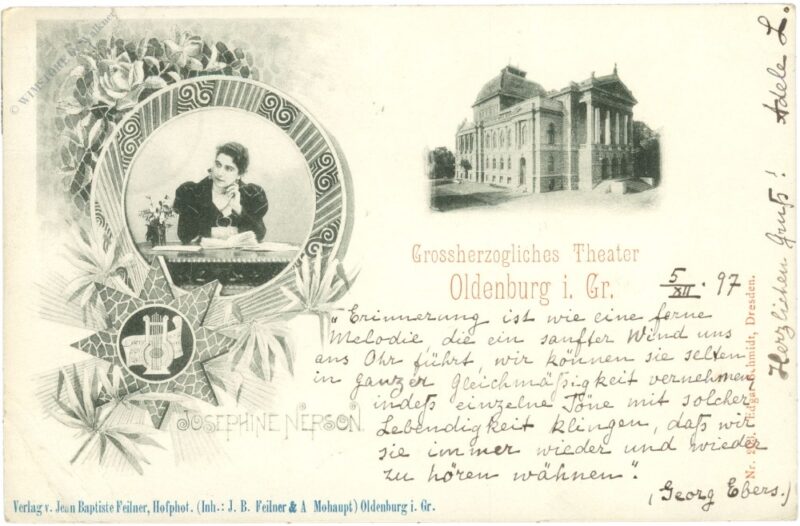 © WIMSTORF & Walkner
Grossherzogliches Theater
Oldenburg i. Gr.
5/XII. 97
"Erinnerung ist wie eine ferne
Melodie, die ein sanfter Wind uns
ans Ohr führt, wir können sie selten
in ganzer Gleichmäßigkeit vernehmen
indeß einzelne Töne mit solcher
Lebendigkeit klingen, daß wir
sie immer wieder und wieder
zu hören wähnen".
(Georg Ebers.)
JOSEPHINE NERSON
Verlag v. Jean Baptiste Feilner, Hofphot. (Inh.: J. B. Feilner & A Mohaupt) Oldenburg i. Gr.
Edgar Schmidt, Dresden.
Herzlichen Gruß! Adele L.